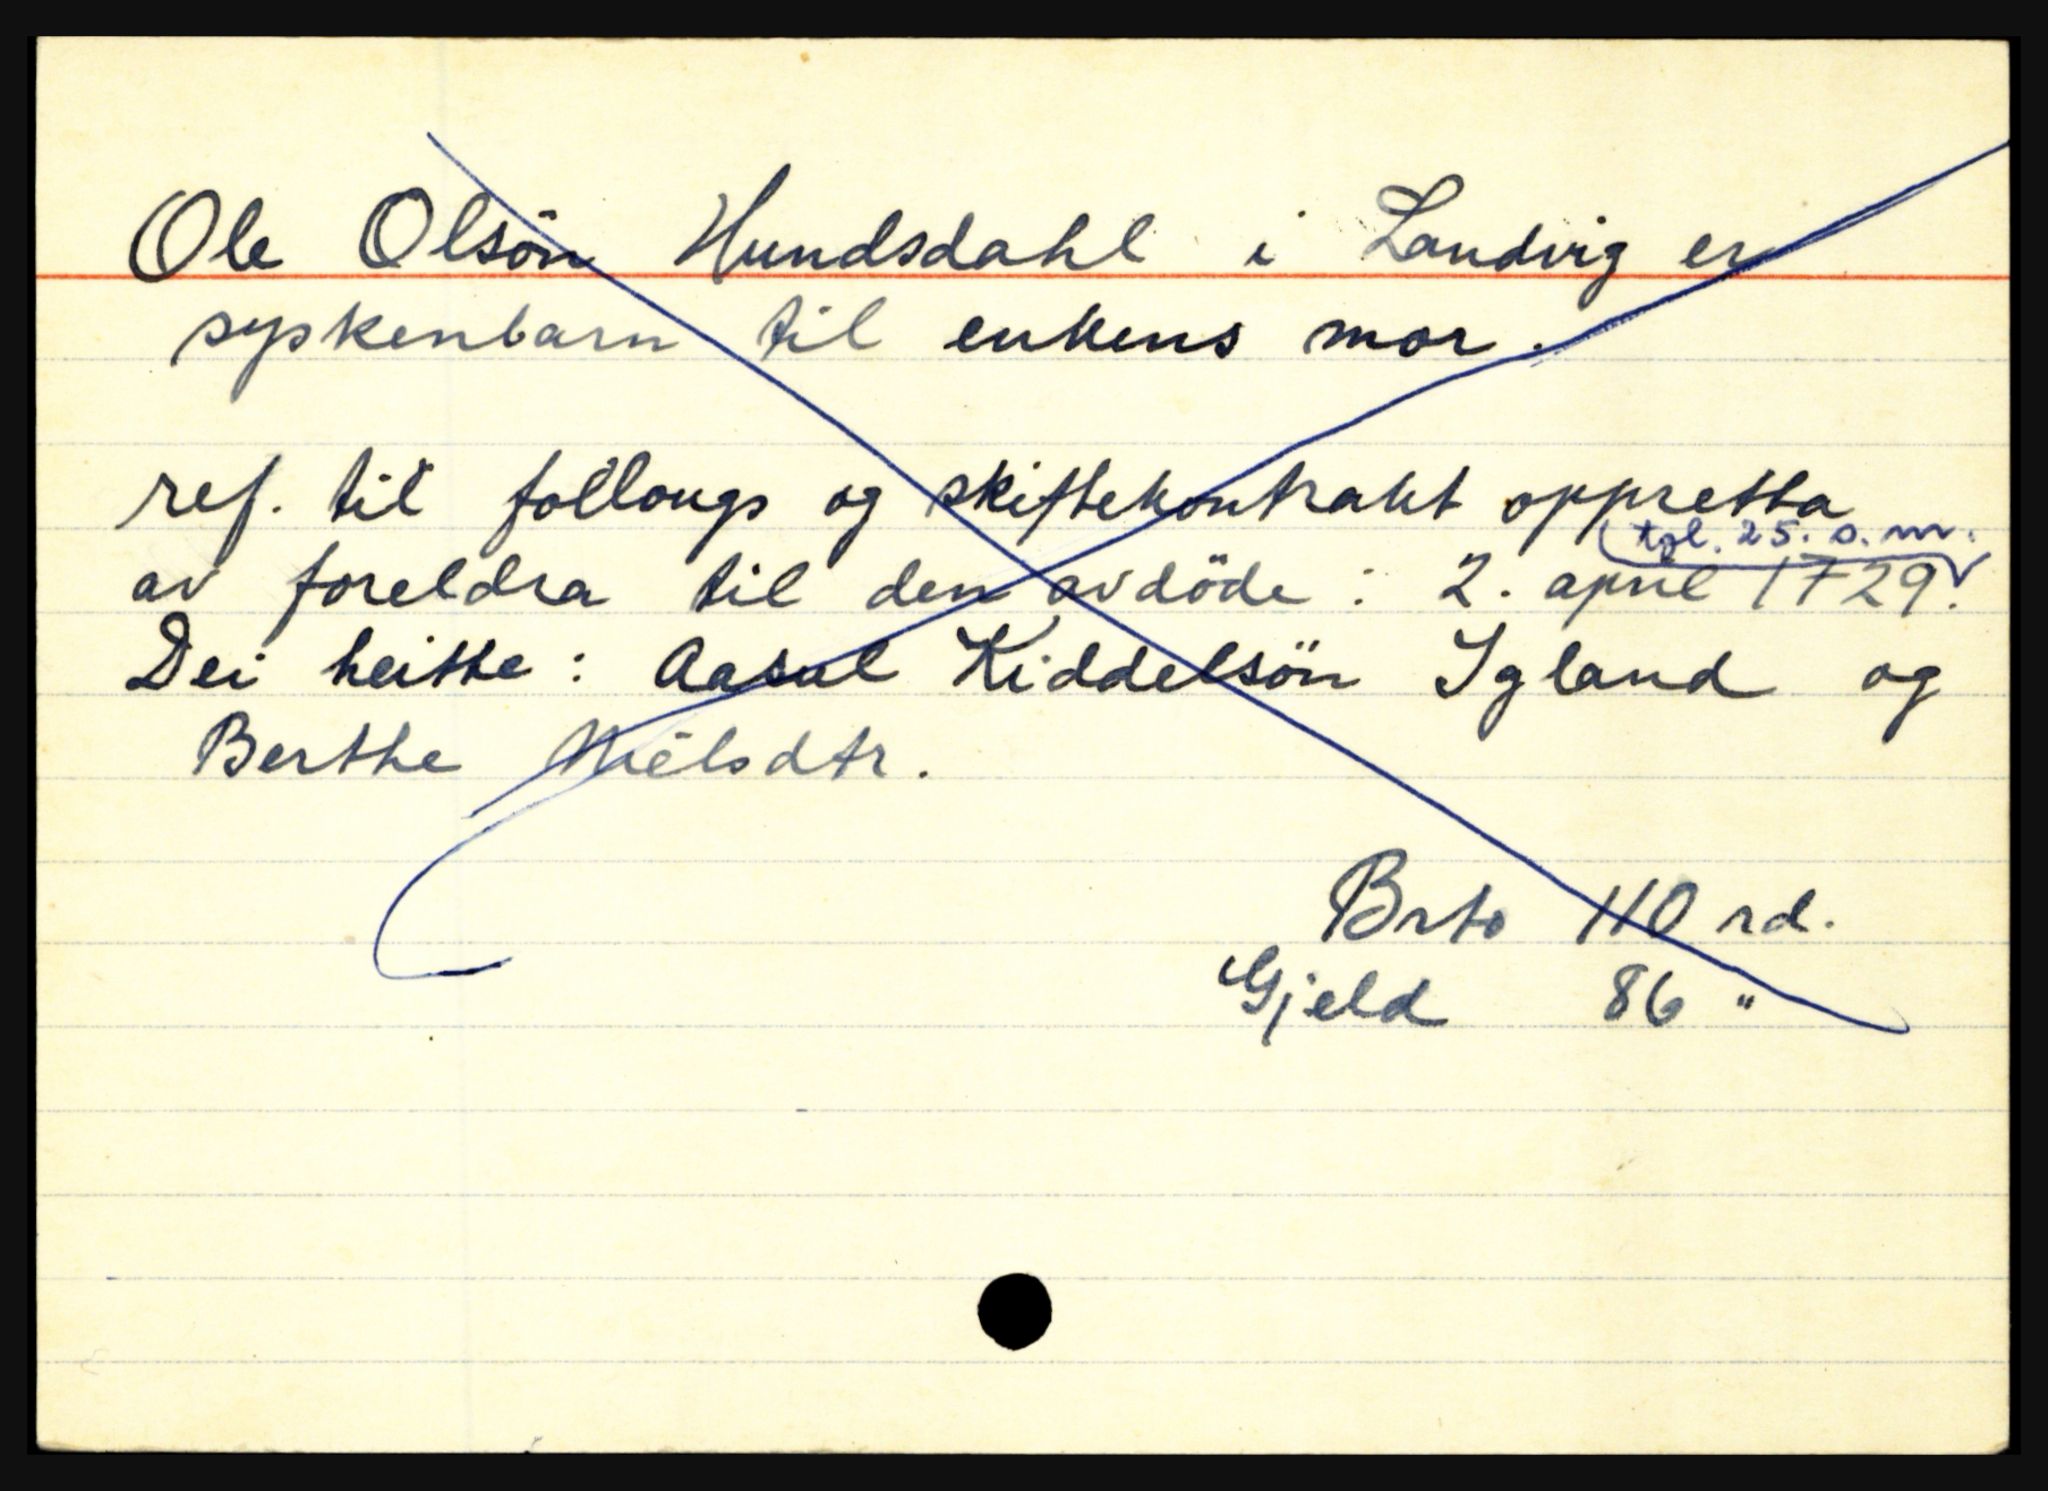 Ole Olsön Hundsdahl i Landvig er
syskenbarn til enkens mor.
ref. til follougs og skiftekontrakt oppretta
tgl. 25. s. m.
av foreldra til den avdöde : 2. april 1729.
Dei heitte : Aasul Kiddelsön Igland og
Berthe Nielsdtr.
Brto 110 rd.
Gjeld 86 "